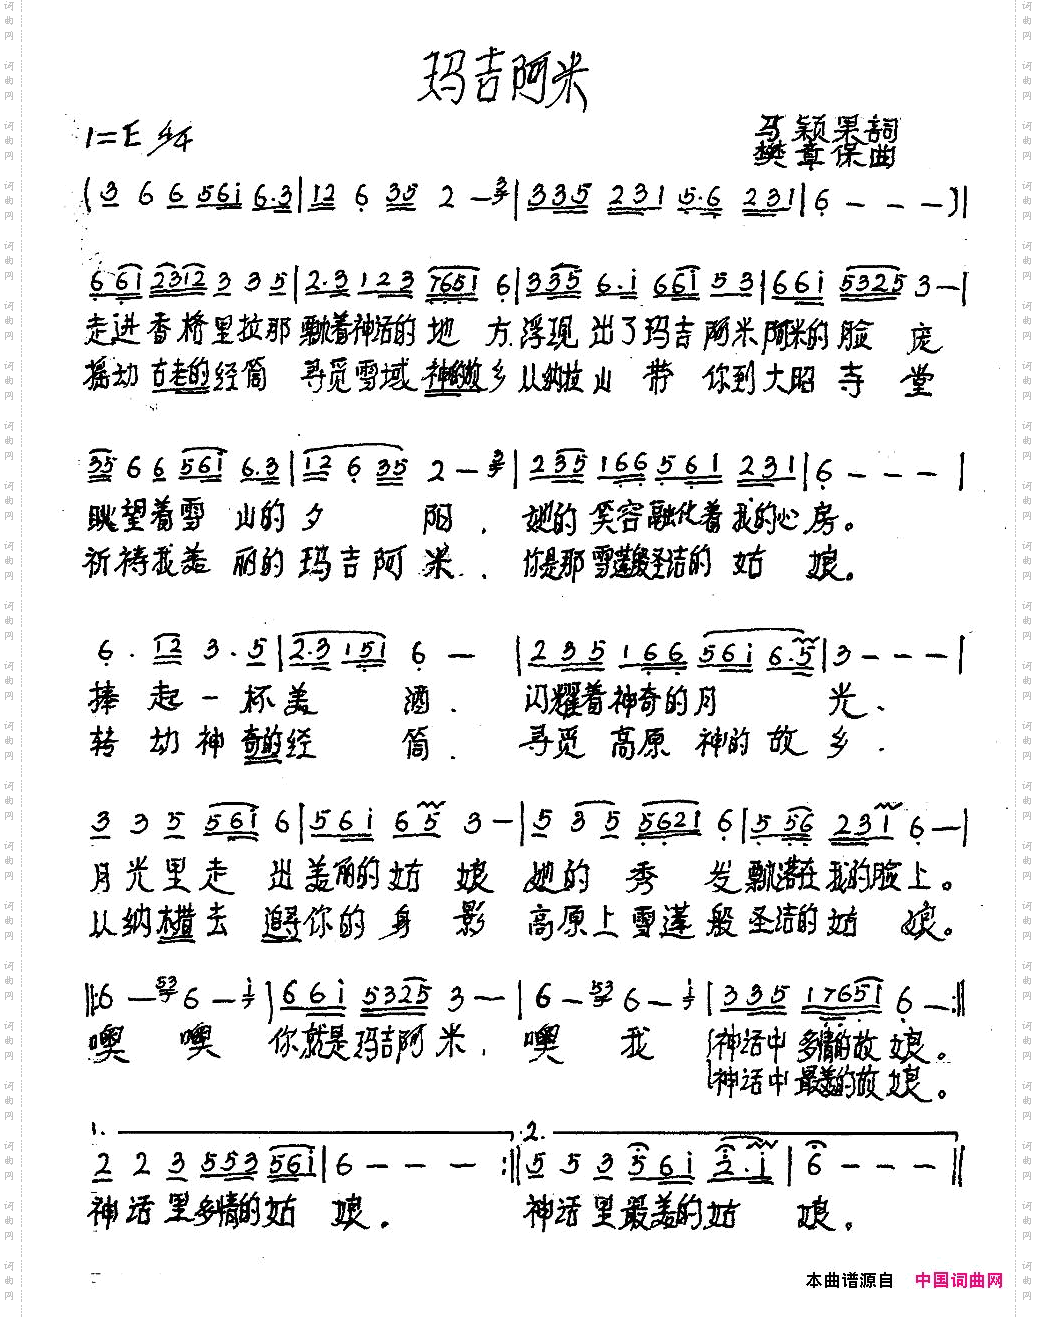 玛吉阿米
1=E 4/4
马颖果詞
樊章保曲
(3 6 6 5 6 i 6·3 | 1 2 6 3 5 2 — 3 | 3 3 5 2 3 1 5·6 2 3 1 | 6 — — —)|
6 6 1 2 3 1 2 3 3 5 | 2·3 1 2 3 7 6 5 1 6 | 3 3 5 6·i 6 6 i 5 3 | 6 6 i 5 3 2 5 3 — |
走进香格里拉那飘着神话的地方.浮现出了玛吉阿米阿米的脸庞
摇动古老的经筒 寻觅雪域神的故乡从纳拉山带你到大昭寺堂
3 5 6 6 5 6 i 6·3 | 1 2 6 3 5 2 — 3 | 2 3 5 1 6 6 5 6 1 2 3 1 | 6 — — — |
眺望着雪山的夕阳.她的笑容融化着我的心房。
祈祷我美丽的玛吉阿米.你是那雪莲般圣洁的姑娘。
6·1 2 3·5 | 2·3 1 5 1 6 — | 2 3 5 1 6 6 5 6 i 6·5 | 3 — — — |
捧起一杯美酒.闪耀着神奇的月光、
转动神奇的经筒.寻觅高原神的故乡.
3 3 5 5 6 i 6 | 5 6 i 6 5 3 — | 5 3 5 5 6 2 1 6 | 5 5 6 2 3 1 6 — |
月光里走出美丽的姑娘她的秀发飘落在我的脸上。
从纳木措去追寻你的身影高原上雪莲般圣洁的姑娘。
‖:6 — 5 3 6 — i | 6 6 i 5 3 2 5 3 — — | 6 — 5 3 6 — i | 3 3 5 1 7 6 5 1 6 — :‖
噢 噢 你就是玛吉阿米.噢 我 神话中多情的故娘。
神话中最美的故娘。
1. 2.
2 2 3 5 5 3 5 6 i | 6 — — — :‖ 5 5 3 5 6 i 2·i | 6 — — — ‖
神话里多情的姑娘。神话里最美的姑娘。
本曲谱源自 中国词曲网